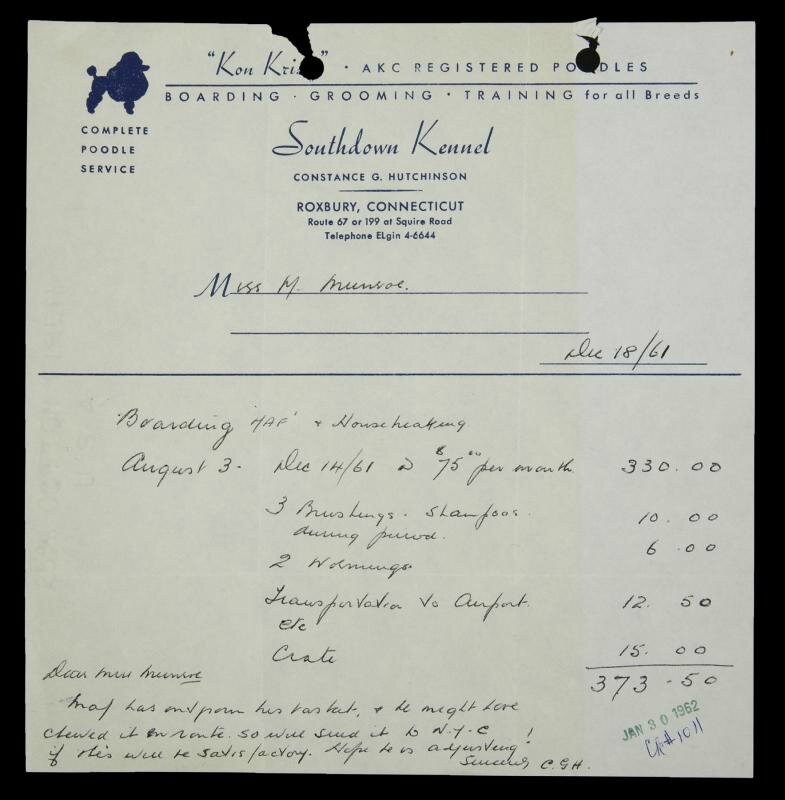 "Kon Kri " · AKC REGISTERED POODLES
BOARDING · GROOMING · TRAINING for all Breeds
COMPLETE
POODLE
SERVICE
Southdown Kennel
CONSTANCE G. HUTCHINSON
ROXBURY, CONNECTICUT
Route 67 or 199 at Squire Road
Telephone ELgin 4-6644
Miss M. Munroe.
Dec 18/61
Boarding 'MAF' & Housebreaking
August 3 - Dec 14/61 @ $75.00 per month 330.00
3 Brushings - Shampoos 10.00
during period.
2 Wormings 6.00
Transportation to Airport 12.50
etc
Crate 15.00
373.50
Dear Miss Munroe
Maf has outgrown his basket, & he might have
chewed it en route. so will send it to N.Y.C
if this will be satisfactory. Hope he is adjusting!
Sincerely C.G.H.
JAN 30 1962
CK# 1011